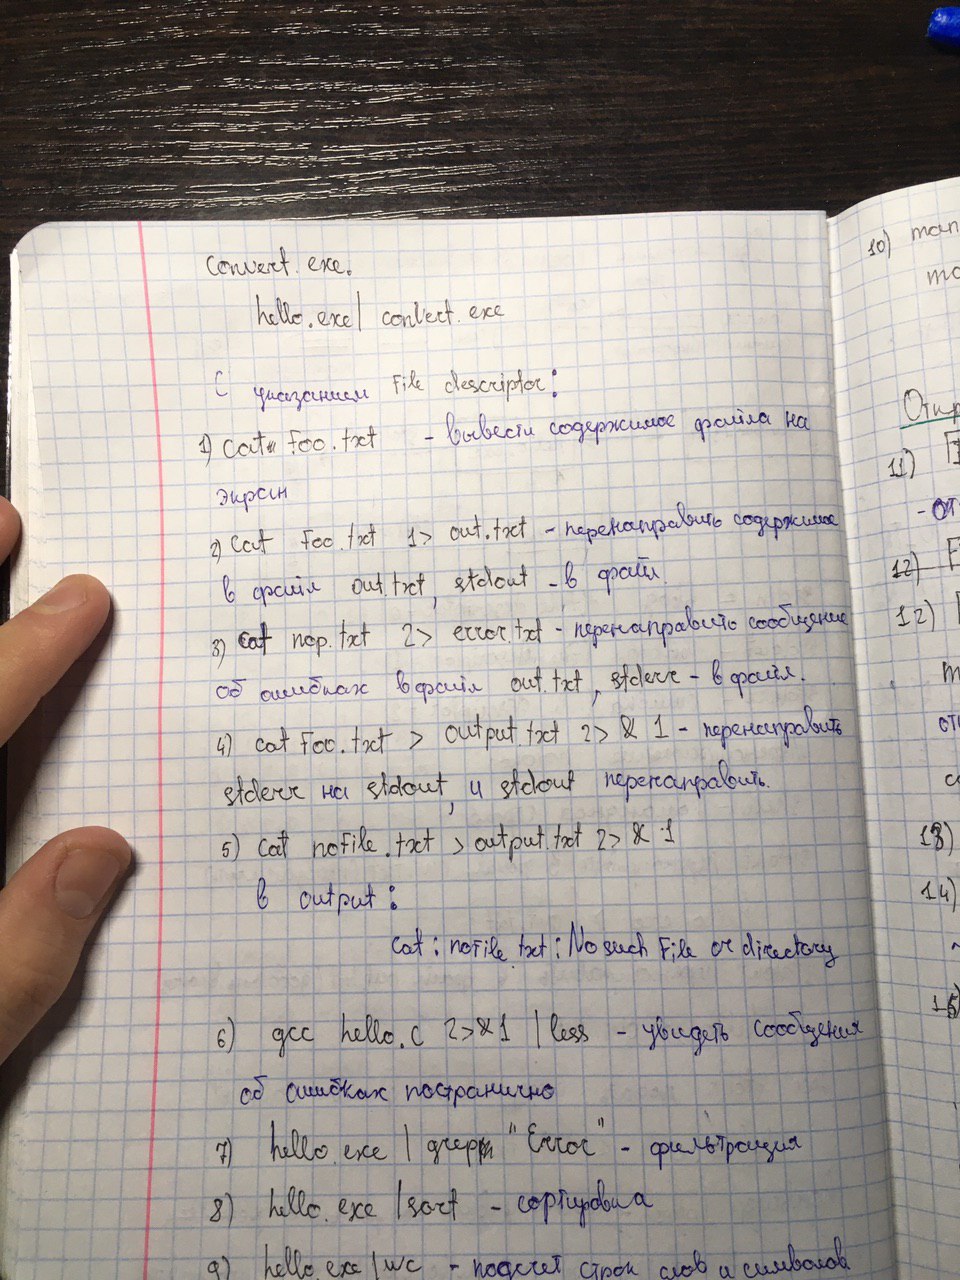 convert.exe.
hello.exe | convert.exe
С указанием file descriptor:
1) cat foo.txt - вывести содержимое файла на
экран
2) cat foo.txt 1> out.txt - перенаправить содержимое
в файл out.txt, stdout - в файл.
3) cat nop.txt 2> error.txt - перенаправить сообщение
об ошибках в файл out.txt, stderr - в файл.
4) cat foo.txt > output.txt 2> & 1 - перенаправить
stderr на stdout, и stdout перенаправить.
5) cat nofile.txt > output.txt 2> & 1
в output:
cat: nofile.txt: No such file or directory
6) gcc hello.c 2>&1 | less - увидеть сообщения
об ошибках постранично
7) hello.exe | grep "Error" - фильтрация
8) hello.exe | sort - сортировка
9) hello.exe | wc - подсчет строк слов и символов
10)
11)
12)
12)
13)
14)
15)